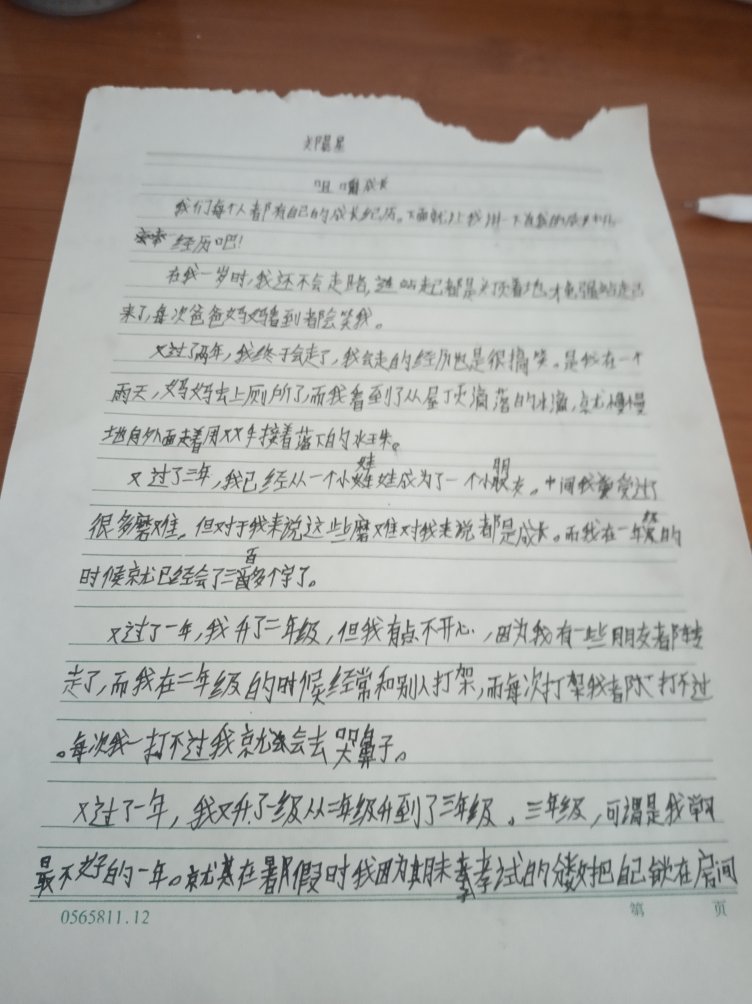 咀嚼成长
我们每个人都有自己的成长经历。下面就让我讲一下我的成长
经历吧!
在我一岁时,我还不会走路,站起都是头顶着地才勉强站起
来了,每次爸爸妈妈看到都会笑我。
又过了两年,我终于会走了,我会走的经历也是很搞笑。是我在一个
雨天,妈妈去上厕所了,而我看到了从屋顶滴落的水滴,就慢慢
地向外面走着用双手接着落下的水珠。
又过了三年,我已经从一个小娃娃成为了一个小朋友。中间我受过了
很多磨难。但对于我来说这些磨难对我来说都是成长。而我在一年级的
时候就已经会了三百多个字了。
又过了一年,我升了二年级,但我有点不开心,因为我有一些朋友都转
走了,而我在二年级的时候经常和别人打架,而每次打架我都打不过
。每次我一打不过我就会去哭鼻子。
又过了一年,我又升了一级从二年级升到了三年级。三年级,可谓是我学习
最不好的一年。就在暑假时我因为期末考试的分数把自己锁在房间
0565811.12
第 页